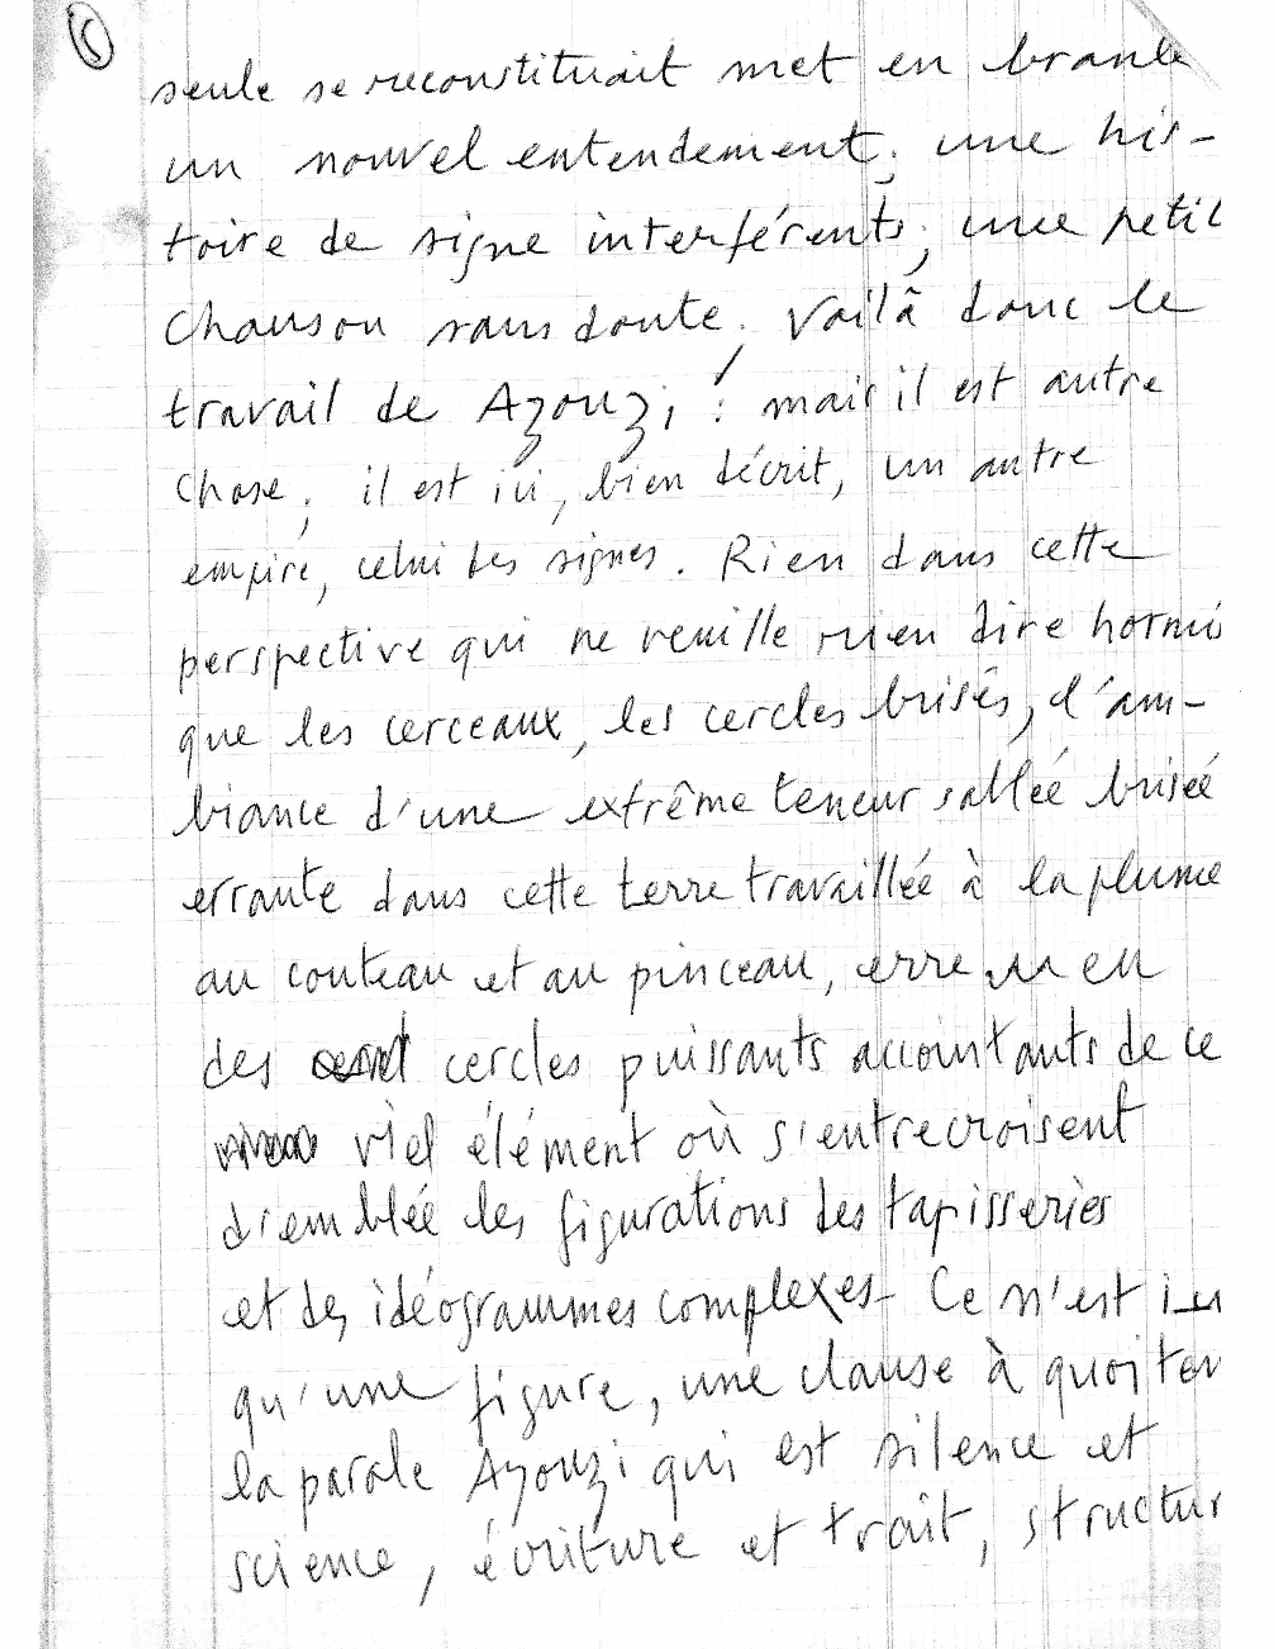 seule se reconstituait met en branle
un nouvel entendement ; une his-
toire de signe interférents ; une petit
chanson sans doute. Voilà donc le
travail de Azouzi ! mais il est autre
chose ; il est ici, bien décrit, un autre
empire, celui des signes. Rien dans cette
perspective qui ne veuille rien dire hormis
que les cerceaux, les cercles brisés, d'am-
biance d'une extrême teneur sablée brisée
errante dans cette terre travaillée à la plume
au couteau et au pinceau, erre en
des cercles puissants accointants de ce
viel élément où s'entrecroisent
d'emblée les figurations des tapisseries
et des idéogrammes complexes - Ce n'est
qu'une figure, une clause à quoi
la parole Azouzi qui est silence et
science, écriture et trait, structur